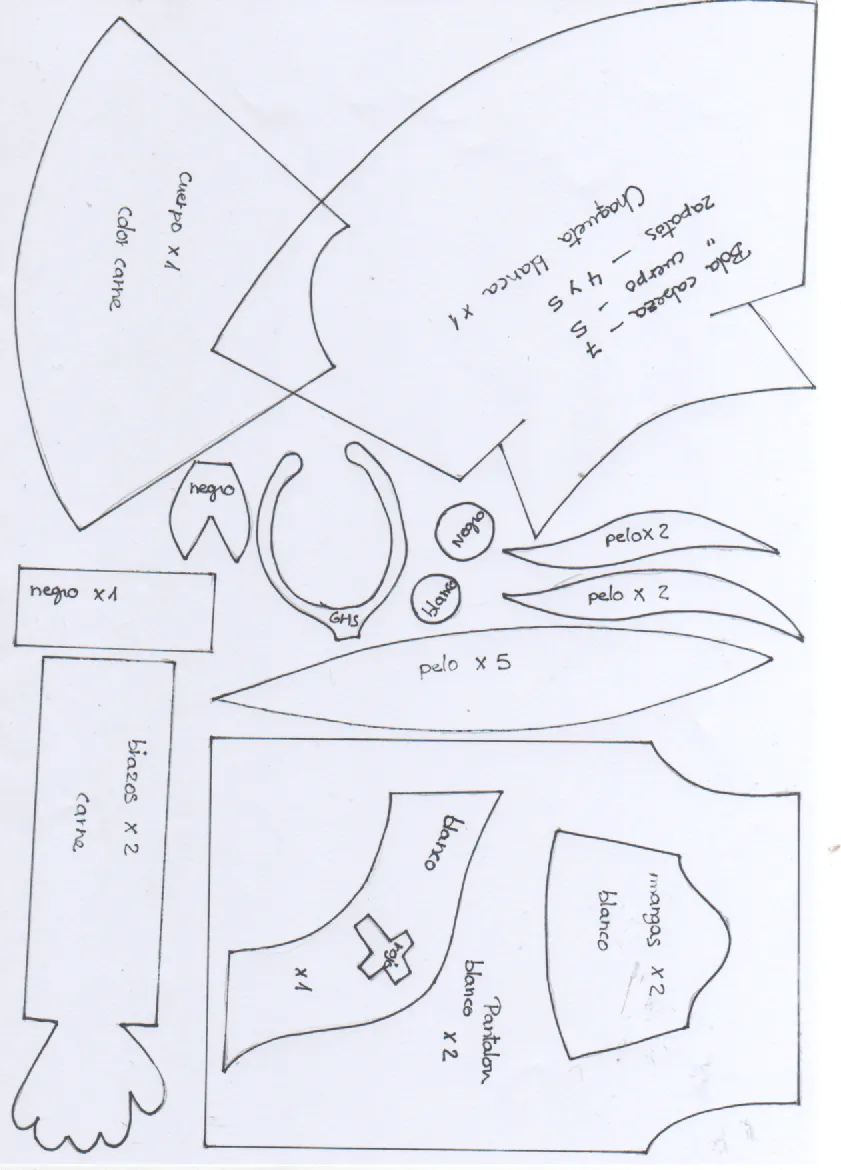 cuerpo x 1
color carne
Bola cabeza - 7
" cuerpo - 5
zapatos - 4 y 5
Chaqueta blanca x 1
negro
GHS
Negro
blanco
pelo x 2
pelo x 2
negro x 1
pelo x 5
brazos x 2
carne
blanco
rojo
x 1
mangas x 2
blanco
Pantalon
blanco
x 2